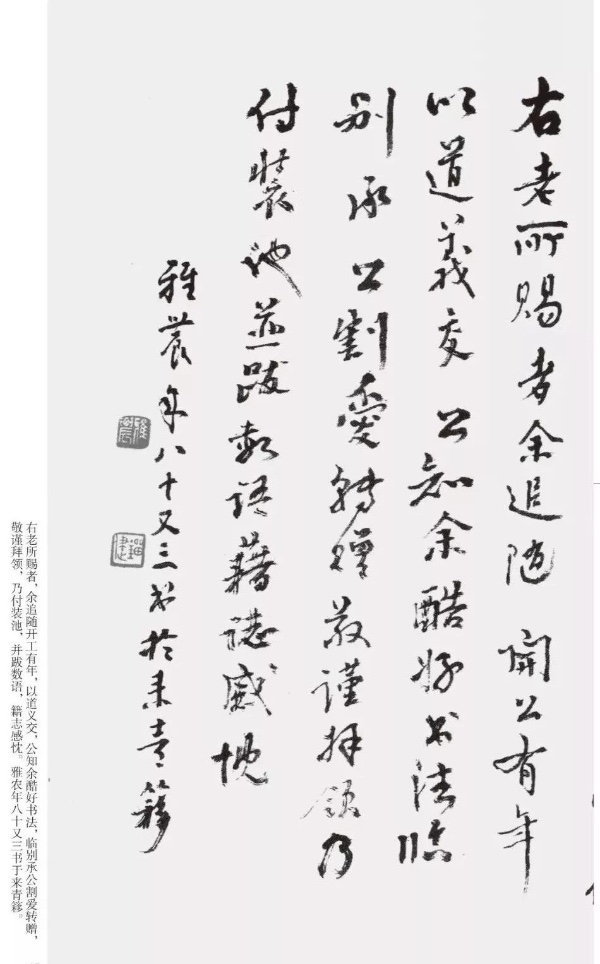 右老所賜者余追随開公有年
以道義交公知余酷好书法临
别承公割愛轉贈敬謹拜領乃
付裝池並跋數語藉誌感忱
雅農年八十又三书於来青簃
雅農
右老所赐者，余追随开工有年，以道义交，公知余酷好书法，临别承公割爱转赠，
敬谨拜领，乃付装池，并跋数语，籍志感忱。雅农年八十又三书于来青簃。